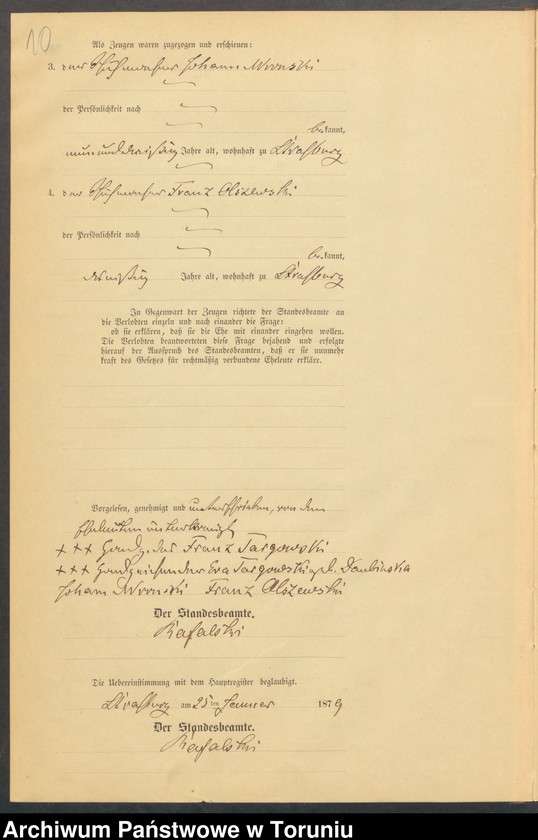 10
Als Zeugen waren zugezogen und erschienen:
3. der Schuhmacher Johann Wronski
der Persönlichkeit nach
bekannt,
neununddreißig Jahre alt, wohnhaft zu Straßburg
4. der Schuhmacher Franz Olszewski
der Persönlichkeit nach
bekannt,
dreißig Jahre alt, wohnhaft zu Straßburg
In Gegenwart der Zeugen richtete der Standesbeamte an
die Verlobten einzeln und nach einander die Frage:
ob sie erklären, daß sie die Ehe mit einander eingehen wollen.
Die Verlobten beantworteten diese Frage bejahend und erfolgte
hierauf der Ausspruch des Standesbeamten, daß er sie nunmehr
kraft des Gesetzes für rechtmäßig verbundene Eheleute erkläre.
Vorgelesen, genehmigt und unterschrieben, von den
Eheleuten unterkreuzt
+++ Handz. des Franz Targowski
+++ Handzeichen der Eva Targowski geb. Dembinska
Johann Wronski Franz Olszewski
Der Standesbeamte.
Rafalski
Die Uebereinstimmung mit dem Hauptregister beglaubigt.
Straßburg am 25 ten Januar 1879
Der Standesbeamte.
Rafalski
Archiwum Państwowe w Toruniu